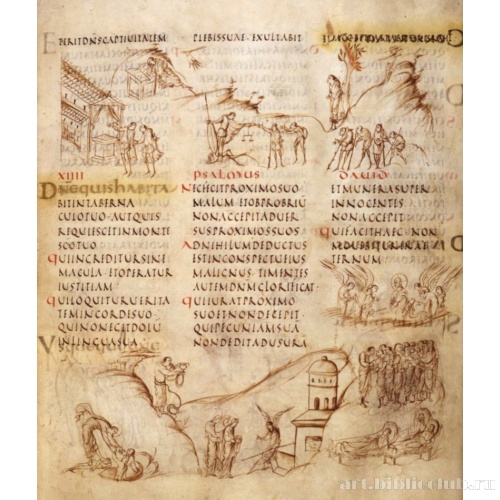 PERITDNSCAPTIUITATEM
PLEBISSUAE·EXULTABIT
XIIII
DNEQUISHABITA
BITINTABERNA
CULOTUO·AUTQUIS
REQUIESCITINMONTE
SCOTUO
QUIINCREDITURSINE
MACULA·ETOPERATUR
IUSTITIAM
QUILOQUITURUERITA
TEMINCORDESUO
QUINONEGITDOLU
INLINGUASUA
PSALMUS
NECFECITPROXIMOSUO
MALUM·ETOBPROBRIU
NONACCEPITADUER
SUSPROXIMOSSUOS
ADNIHILUMDEDUCTUS
ESTINCONSPECTUEIUS
MALIGNUS·TIMENTES
AUTEMDNMGLORIFICAT·
QUIIURATPROXIMO
SUOETNONDECEPIT
QUIPECUNIAMSUA
NONDEDITADUSURA
DAUID
ETMUNERASUPER
INNOCENTES
NONACCEPIT
QUIFACITHAEC·NON
MOUEBITURINAE
TERNUM
art.biblioclub.ru